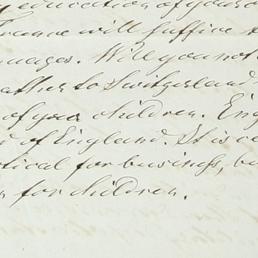 education of your
France will suffice
Will you not
rather to Switzerland
of your children. Eng
of England. It is
tical for business, bu
for children.